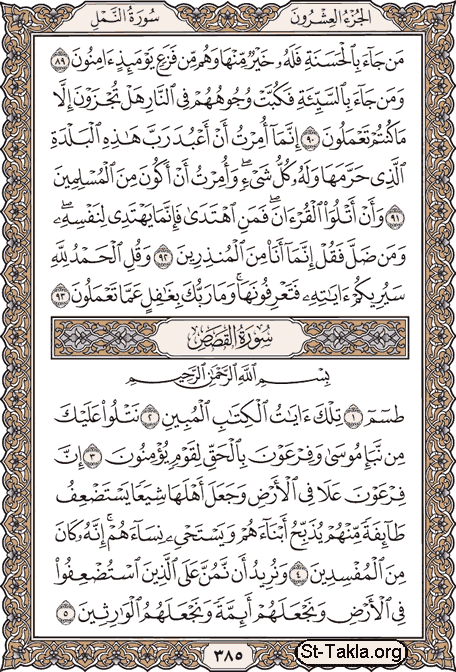 الجزء العشرون
سورة النمل
مَن جَآءَ بِٱلْحَسَنَةِ فَلَهُۥ خَيْرٌ مِّنْهَا وَهُم مِّن فَزَعٍ يَوْمَئِذٍ ءَامِنُونَ ٨٩
وَمَن جَآءَ بِٱلسَّيِّئَةِ فَكُبَّتْ وُجُوهُهُمْ فِى ٱلنَّارِ هَلْ تُجْزَوْنَ إِلَّا
مَا كُنتُمْ تَعْمَلُونَ ٩٠ إِنَّمَآ أُمِرْتُ أَنْ أَعْبُدَ رَبَّ هَٰذِهِ ٱلْبَلْدَةِ
ٱلَّذِى حَرَّمَهَا وَلَهُۥ كُلُّ شَىْءٍ ۖ وَأُمِرْتُ أَنْ أَكُونَ مِنَ ٱلْمُسْلِمِينَ
٩١ وَأَنْ أَتْلُوَا۟ ٱلْقُرْءَانَ ۖ فَمَنِ ٱهْتَدَىٰ فَإِنَّمَا يَهْتَدِى لِنَفْسِهِۦ ۖ
وَمَن ضَلَّ فَقُلْ إِنَّمَآ أَنَا۠ مِنَ ٱلْمُنذِرِينَ ٩٢ وَقُلِ ٱلْحَمْدُ لِلَّهِ
سَيُرِيكُمْ ءَايَٰتِهِۦ فَتَعْرِفُونَهَا ۚ وَمَا رَبُّكَ بِغَٰفِلٍ عَمَّا تَعْمَلُونَ ٩٣
سورة القصص
بِسْمِ ٱللَّهِ ٱلرَّحْمَٰنِ ٱلرَّحِيمِ
طسٓمٓ ١ تِلْكَ ءَايَٰتُ ٱلْكِتَٰبِ ٱلْمُبِينِ ٢ نَتْلُوا۟ عَلَيْكَ
مِن نَّبَإِ مُوسَىٰ وَفِرْعَوْنَ بِٱلْحَقِّ لِقَوْمٍ يُؤْمِنُونَ ٣ إِنَّ
فِرْعَوْنَ عَلَا فِى ٱلْأَرْضِ وَجَعَلَ أَهْلَهَا شِيَعًا يَسْتَضْعِفُ
طَآئِفَةً مِّنْهُمْ يُذَبِّحُ أَبْنَآءَهُمْ وَيَسْتَحْىِۦ نِسَآءَهُمْ ۚ إِنَّهُۥ كَانَ
مِنَ ٱلْمُفْسِدِينَ ٤ وَنُرِيدُ أَن نَّمُنَّ عَلَى ٱلَّذِينَ ٱسْتُضْعِفُوا۟
فِى ٱلْأَرْضِ وَنَجْعَلَهُمْ أَئِمَّةً وَنَجْعَلَهُمُ ٱلْوَٰرِثِينَ ٥
٣٨٥
St-Takla.org